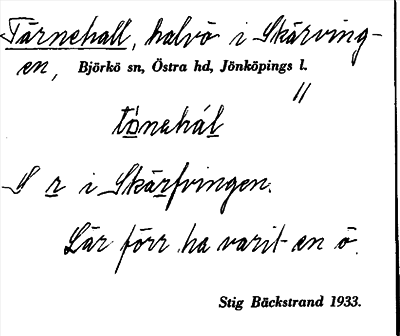 Tärnehall, halvö i Skärving-
en, Björkö sn, Östra hd, Jönköpings l.
"
tǟnehál
S r i Skärfvingen.
Lär förr ha varit en ö.
Stig Bäckstrand 1933.